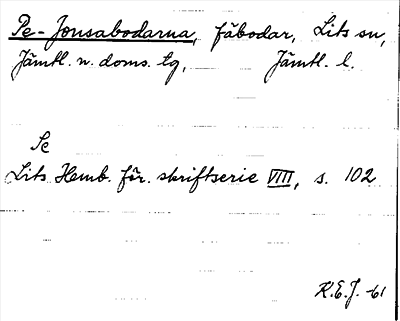 Pe-Jonsabodarna, fäbodar, Lits sn,
Jämtl. n. doms. tg, Jämtl. l.
Se
Lits Hemb. för. skriftserie VIII, s. 102
K.E.J. -61